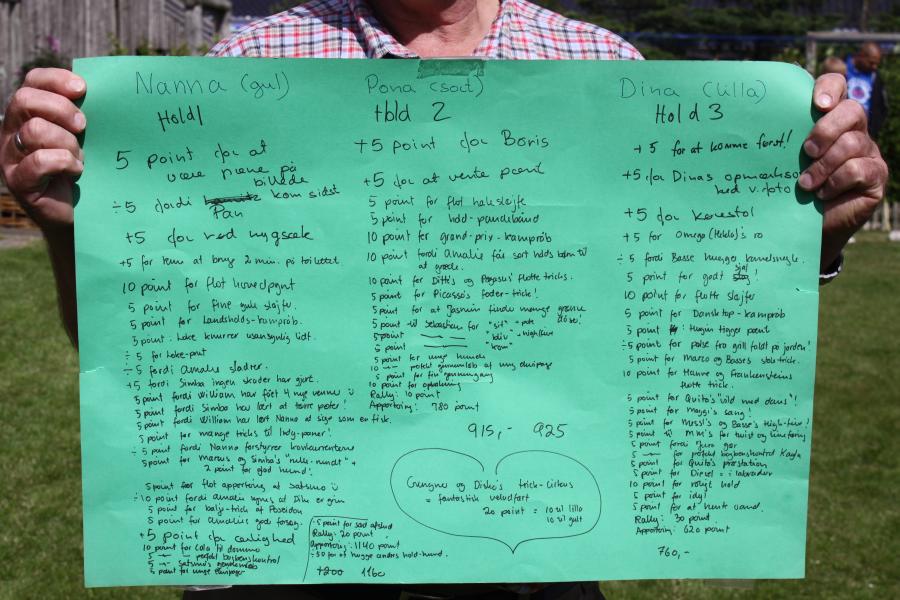 Nanna (gul)
Hold 1
5 point for at
være nene på
billede
÷5 fordi kom sidst
Pan
+5 for rød rygsæk
+5 for kun at bruge 2 min. på toilettet
10 point for flot hovedpynt
5 point for fine gule sløjfer.
5 point for Landsholds-kampråb.
5 point: Loke knurrer usansynlig lidt.
÷ 5 for Loke-prut
÷ 5 fordi Amalie sladrer.
+5 fordi Simba ingen skader har gjort.
5 point fordi William har fået 4 nye venner ü
5 point fordi Simba har lært at tørre poter!
5 point fordi William har lært Nanna at sige som en fisk.
5 point for mange tricks til lady-poner!
÷ 5 point fordi Nanna forstyrrer konkurrenterne
5 point for Marcus og Simba's "rulle-rundt" +
2 point for glad hund!
5 point for flot apportering af Satsmo ü
÷10 point fordi Amalie synes at Ditte er grim
5 point for balje-trick af Poseidon
5 point for Amalies gode forsøg.
+5 point for ærlighed
10 point for Cola til dommer
5 —"— perfekt bagbenskontrol
5 —"— Satsmo's
5 point for unge ekvipager
Pona (sort)
Hold 2
+5 point for Boris
+5 for at vente pænt
5 point for flot halssløjfe
5 point for hold-pandebånd
10 point for grand-prix-kampråb
10 point fordi Amalie får sort holds børn til
at græde.
10 point for Ditte's og Pegasus' flotte tricks.
5 point for Picasso's foder-trick!
5 point for at Jasmin fandt mange grønne
dåser!
5 point til Sebastian for "sit" + pote
5 point —"— "bliv" + highfive
5 point —"— "kom"
5 point for unge hunde
10 —"— perfekt gennemløb af ung ekvipage
5 point for fin gennemgang
10 point for opbakning
Rally: 10 point
Apportering: 780 point
915,- 925
Gungne og Disko's trick-cirkus
= fantastisk veludført
20 point = 10 til lilla
10 til gult
÷5 point for sød afslud
Rally: 20 point
Apportering: 1140 point
÷50 for at hugge andres hold-hund.
+200 1160
Dina (lilla)
Hold 3
+ 5 for at komme først!
+5 for Dinas opmærksom
hed v. foto
+5 for kørestol
+5 for Omega (Hilda)'s ro
÷ 5 fordi Basse hugger kamelsnegle.
5 point for godt sjaj !
10 point for flotte sløjfer
5 point for Dansktop-kampråb
5 point : Hugin tigger pænt
÷5 point for pølse fra grill faldt på jorden!
5 point for Marco og Basse's stole-trick.
10 point for Hanne og Frankensteins
flotte trick.
5 point for Quito's "vild med dans"!
5 point for Maggi's sang!
5 point for Missi's og Basse's "high-five"!
5 point til MM's for twist og limefarve
5 point fordi Furo gør
5 —"— for perfekt bagbenskontrol Kayla
5 point for Quito's præstation
5 point for Diesel = i labrador
10 point for roligt hold
5 point for idyl
5 point for at hente vand.
Rally: 30 point
Apportering: 620 point
760,-